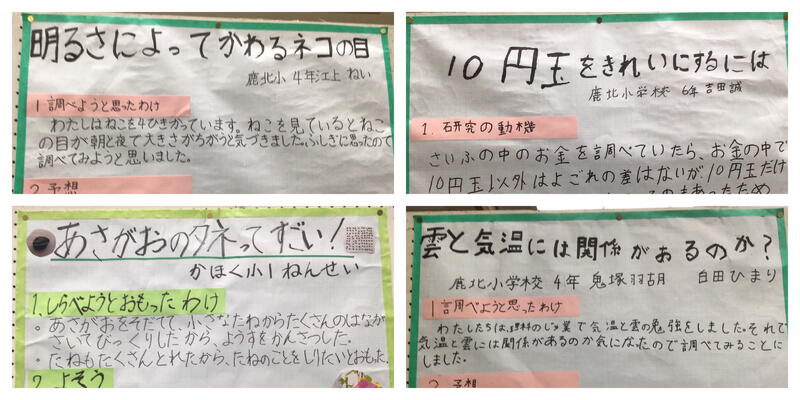 明るさによってかわるネコの目
鹿北小 4年江上 ねい
1 調べようと思ったわけ
わたしはねこを4ひきかっています。ねこを見ているとねこ
の目が朝と夜で大きさがちがうと気づきました。ふしぎに思ったので
調べてみようと思いました。
2 予想
10円玉をきれいにするには
鹿北小学校 6年 吉田誠
1. 研究の動機
さいふの中のお金を調べていたら、お金の中で
10円玉以外はよごれの差はないが、10円玉だけ
あさがおのタネってすごい!
かほく小1ねんせい
1.しらべようとおもったわけ
・あさがおをそだてて、小さなたねからたくさんのはなが
さいてびっくりしたから、ようすをかんさつした。
・たねもたくさんとれたから、たねのことをしりたいとおもった。
2.よそう
雲と気温には関係があるのか?
鹿北小学校 4年 鬼塚羽胡 白田ひまり
1 調べようと思ったわけ
わたしたちは、理科のじゅ業で気温と雲の勉強をしました。それで
気温と雲には関係があるのか気になったので調べてみることに
しました。
2 予想